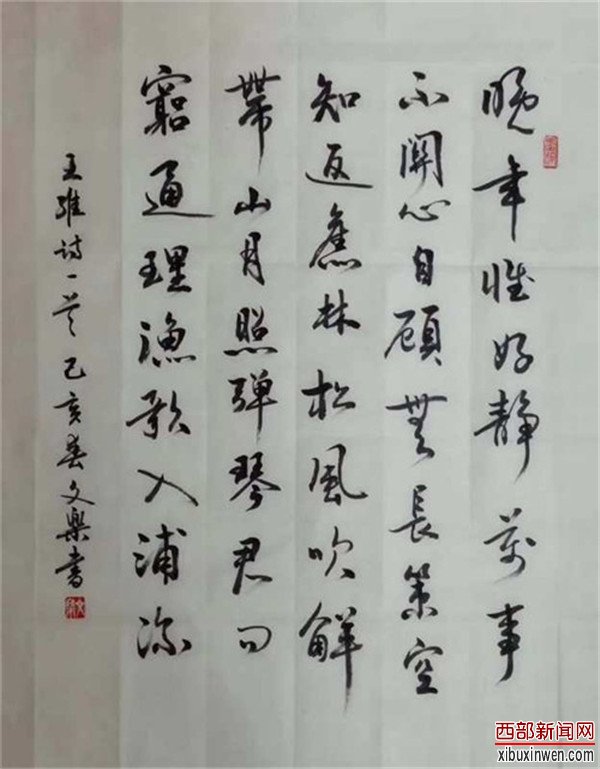 晚年惟好静萬事
不關心自顧無長策空
知返舊林松風吹解
帶山月照弹琴君问
窮通理漁歌入浦深
王維诗一首己亥春文樂书
西部新闻网
xibuxinwen.com